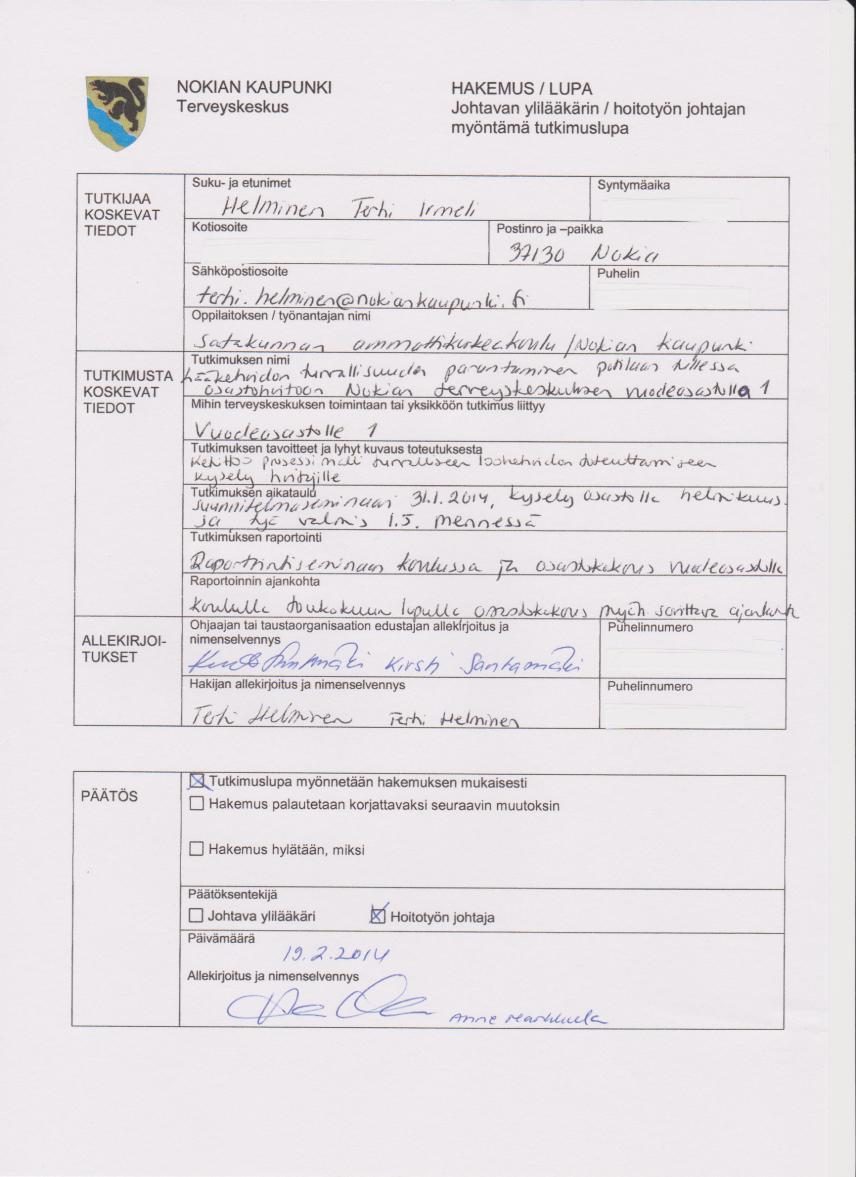 NOKIAN KAUPUNKI
Terveyskeskus
HAKEMUS / LUPA
Johtavan ylilääkärin / hoitotyön johtajan
myöntämä tutkimuslupa
TUTKIJAA
KOSKEVAT
TIEDOT
Suku- ja etunimet
Helminen Terhi Irmeli
Syntymäaika
Kotiosoite
Postinro ja –paikka
37130 Nokia
Sähköpostiosoite
terhi.helminen@nokiankaupunki.fi
Puhelin
Oppilaitoksen / työnantajan nimi
Satakunnan ammattikorkeakoulu / Nokian kaupunki
TUTKIMUSTA
KOSKEVAT
TIEDOT
Tutkimuksen nimi
Lääkehoidon turvallisuuden parantaminen potilaan tullessa
osastohoitoon Nokian terveyskeskuksen vuodeosastolla 1
Mihin terveyskeskuksen toimintaan tai yksikköön tutkimus liittyy
Vuodeosastolle 1
Tutkimuksen tavoitteet ja lyhyt kuvaus toteutuksesta
prosessimalli turvalliseen lääkehoidon toteuttamiseen
kysely hoitajille
Tutkimuksen aikataulu
Suunnitelmaseminaari 31.1.2014, kysely osastolla helmikuus
ja työ valmis 1.5. mennessä
Tutkimuksen raportointi
Raportointiseminaari koulussa ja osastokokous vuodeosastolla
Raportoinnin ajankohta
Koululla toukokuun lopulla osastokokous myöh sovittava ajankoht
ALLEKIRJOI-
TUKSET
Ohjaajan tai taustaorganisaation edustajan allekirjoitus ja
nimenselvennys
Kirsti Santamäki
Puhelinnumero
Hakijan allekirjoitus ja nimenselvennys
Terhi Helminen Terhi Helminen
Puhelinnumero
PÄÄTÖS
Tutkimuslupa myönnetään hakemuksen mukaisesti
Hakemus palautetaan korjattavaksi seuraavin muutoksin
Hakemus hylätään, miksi
Päätöksentekijä
Johtava ylilääkäri
Hoitotyön johtaja
Päivämäärä
19.2.2014
Allekirjoitus ja nimenselvennys
Anne Markkula